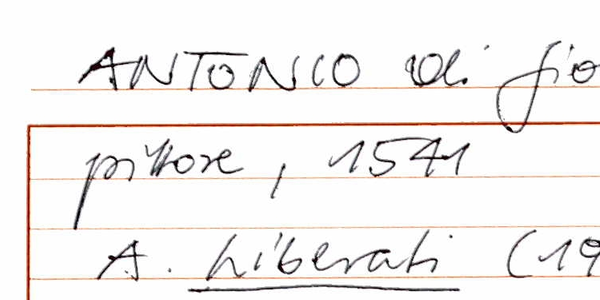 ANTONIO di Gio
pittore, 1541
A. Liberati (19